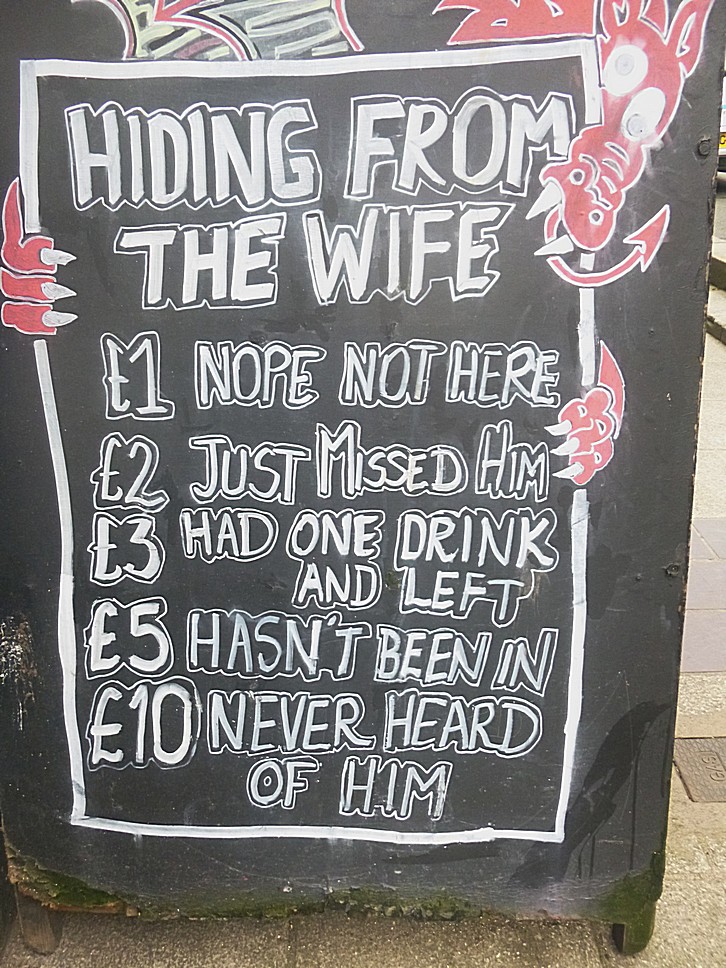 HIDING FROM
THE WIFE
£1 NOPE NOT HERE
£2 JUST MISSED HIM
£3 HAD ONE DRINK
AND LEFT
£5 HASN'T BEEN IN
£10 NEVER HEARD
OF HIM